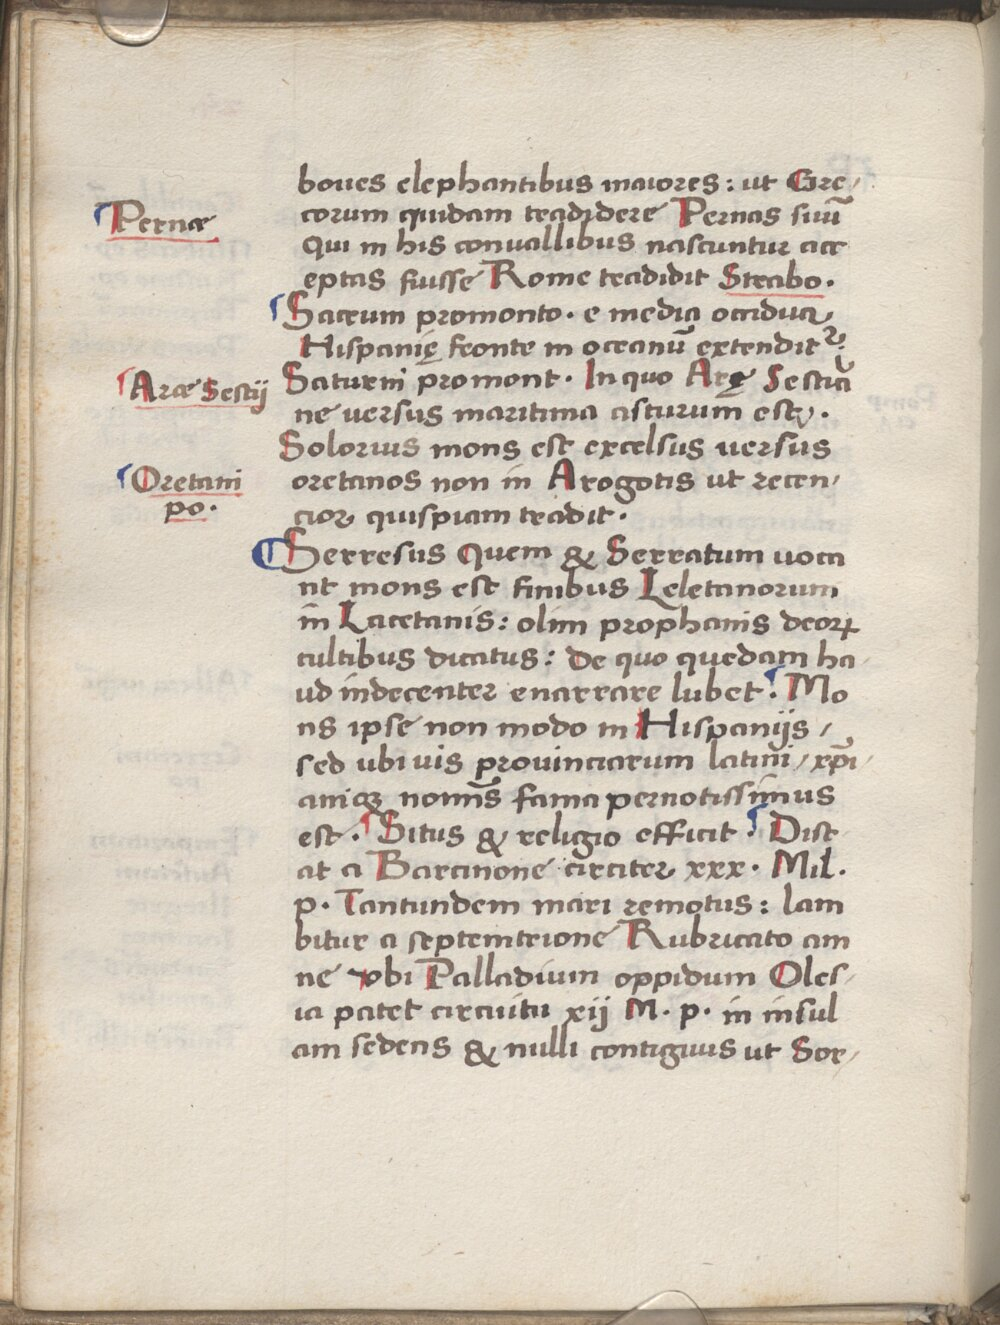 boues elephantibus maiores: ut Gre/
Pernæ
corum quidam tradidere Pernas suū
qui in his conuallibus nascuntur acc
eptas fuisse Rome tradidit Strabo.
Sacrum promonto. e media occidua
Hispanię fronte in oceanū extendit̃
Aræ Sestij
Saturni promont. In quo Arę Sestia
ne versus maritima asturum est.
Solorius mons est excelsus versus
Oretani
po.
oretanos non in Arogotis ut recen/
cior quispiam tradit.
Serresus Quem & Serratum uoca
nt mons est finibus Leletanorum
in Lacetanis: olim prophanis deoꝝ
cultibus dicatus: De quo quedam ha/
ud indecenter enarrare lubet. Mo
ns ipse non modo in Hispanijs /
sed ubi uis prouinciarum latini / xp̄i/
aniqꝫ nomīs fama pernotissimus
est. Situs & religio efficit. Dist
at a Barcinone circiter xxx. Mil.
p. Tantundem mari remotus: lam
bitur a septemtrione Rubricato am
ne vbi Palladium oppidum Oles/
ia patet circuitu xij M. p. in insul
am sedens & nulli contiguus ut Sor/